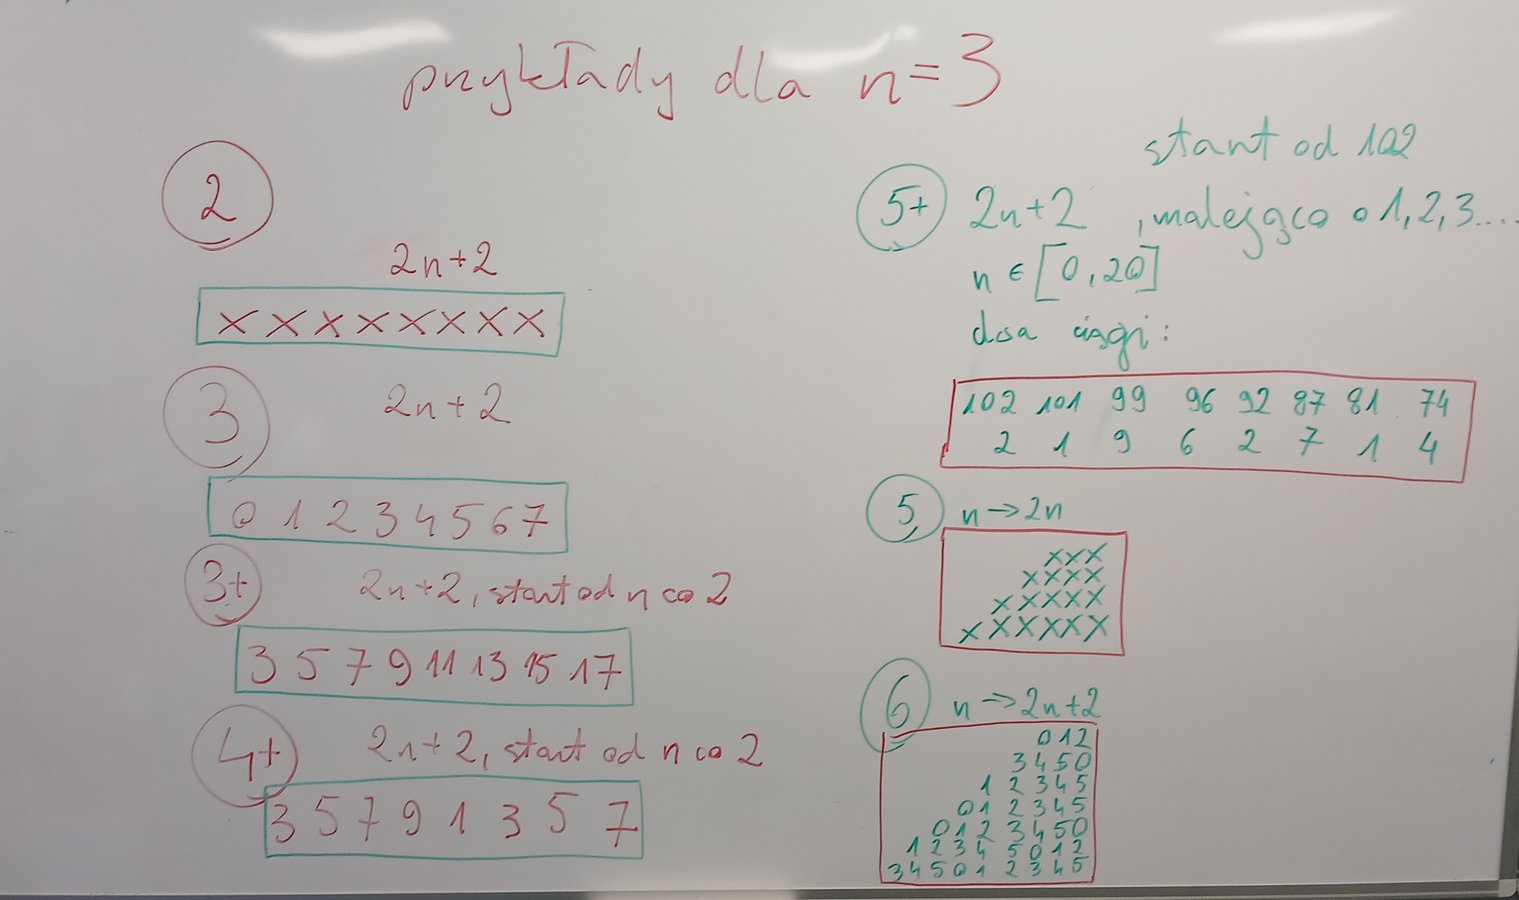 przykłady dla n=3
2
2n+2
x x x x x x x x
3
2n+2
0 1 2 3 4 5 6 7
3+
2n+2, start od n co 2
3 5 7 9 11 13 15 17
4+
2n+2, start od n co 2
3 5 7 9 1 3 5 7
start od 102
5+ 2n+2, malejąco o 1, 2, 3....
n ∈ [0, 20]
dwa ciągi:
102 101 99 96 92 87 81 74
2 1 9 6 2 7 1 4
5 n → 2n
x x x
x x x x
x x x x x
x x x x x x
6 n → 2n+2
0 1 2
3 4 5 0
1 2 3 4 5
0 1 2 3 4 5
0 1 2 3 4 5 0
1 2 3 4 5 0 1 2
3 4 5 0 1 2 3 4 5